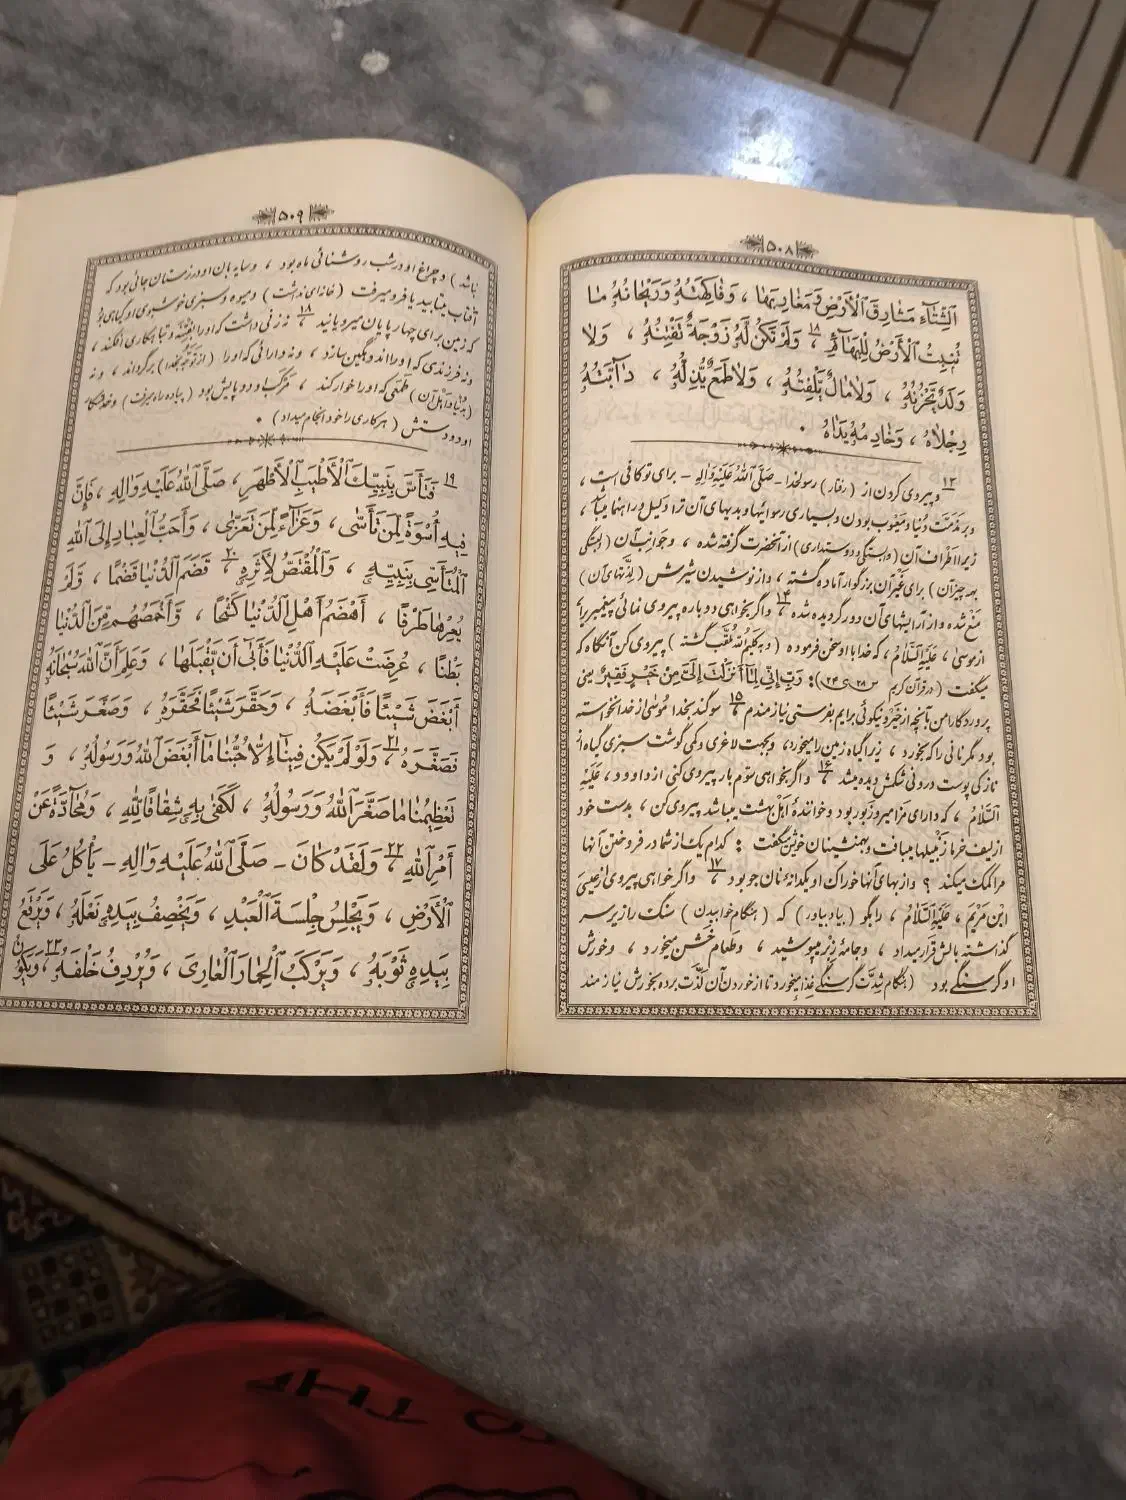 ۵۰۸
الشِّتَاءِ مَشَارِقَ الْأَرْضِ وَمَغَارِبَهَا ، وَفَاكِهَتُهُ وَرَيْحَانُهُ مَا
تُنْبِتُ الْأَرْضُ لِلْبَهَائِمِ ۱۸ وَلَمْ تَكُنْ لَهُ زَوْجَةٌ تَفْتِنُهُ ، وَلَا
وَلَدٌ يَحْزُنُهُ ، وَلَا مَالٌ يَلْفِتُهُ ، وَلَا طَمَعٌ يُذِلُّهُ ، دَآبَّتُهُ
رِجْلَاهُ ، وَخَادِمُهُ يَدَاهُ .
۱۳ و پیروی کردن از (رفتار) رسولخدا - صَلَّى اللهُ عَلَيْهِ وَآلِهِ - برای تو کافی است ،
و بر مذمّت دنیا و معیوب بودن و بسیاری رسوائیها و بدیهای آن ترا دلیل و راهنما میباشد ،
زیرا اطراف آن (وابستگی و دوستداری) از آنحضرت گرفته شده ، و جوانب آن (دلبستگی
بهر چیز آن) برای غیر آن بزرگوار آماده گشته ، و از نوشیدن شیرش (لذّتهای آن)
منع شده و از آرایشهای آن دور گردیده شده ۱۴ و اگر بخواهی دوباره پیروی نمائی پیغمبر را
از موسی ، عَلَيْهِ السَّلَامُ ، که خدا با او سخن فرموده (و به کلیم الله ملقّب گشته) پیروی کن آنگاه که
میگفت (در قرآن کریم س ۲۸ ی ۲۴) : رَبِّ إِنِّي لِمَا أَنْزَلْتَ إِلَيَّ مِنْ خَيْرٍ فَقِيرٌ یعنی
پروردگارا من بآنچه از خیر و نیکوئی برایم بفرستی نیازمندم ۱۵ سوگند بخدا موسی از خدا نخواسته
بود مگر نانی را که بخورد ، زیرا گیاه زمین را میخورد ، و بجهت لاغری و کمی گوشت سبزی گیاه از
نازکی پوست درونی شکمش دیده میشد ۱۶ و اگر بخواهی سوّم بار پیروی کنی از داوود ، عَلَيْهِ
السَّلَامُ ، که دارای مزامیر و زبور بود و خوانندهٔ اهل بهشت میباشد پیروی کن ، بدست خود
از لیف خرما زنبیلها میبافت و بهمنشینان خویش میگفت : کدام یک از شما در فروختن آنها
مرا کمک میکند ؟ و از بهای آنها خوراک او یکدانه نان جو بود ۱۷ و اگر خواهی پیروی از عیسی
ابْن مَرْيَم ، عَلَيْهِ السَّلَامُ ، را بگو (بیاد بیاور) که (هنگام خوابیدن) سنگ را زیر سر
گذاشته بالش قرار میداد ، و جامهٔ زبر میپوشید ، و طعام خشن میخورد ، و خورش
او گرسنگی بود (هنگام شدّت گرسنگی غذا میخورد تا از خوردن آن لذّت برده بخورش نیازمند
۵۰۹
نباشد) و چراغ او در شب روشنائی ماه بود ، و سایه بان او در زمستان جائی بود که
آفتاب میتابید یا فرو میرفت (خانه ای نداشت) و میوه و سبزی خوشبوی او گیاهی بود
که زمین برای چهارپایان میرویانید ۱۸ نه زنی داشت که او را بفتنه و تباهکاری افکند ،
و نه فرزندی که او را اندوهگین سازد ، و نه دارائی که او را (از توجّه بخدا) برگرداند ، و نه
(بدنیا و اهل آن) طمعی که او را خوار کند ، مرکب او دو پایش بود (پیاده راه میرفت) و خدمتگار
او دو دستش (هر کاری را خود انجام میداد) .
۱۹ فَتَأَسَّ بِنَبِيِّكَ الْأَطْيَبِ الْأَطْهَرِ ، صَلَّى اللهُ عَلَيْهِ وَآلِهِ ، فَإِنَّ
فِيهِ أُسْوَةً لِمَنْ تَأَسَّى ، وَعَزَآءً لِمَنْ تَعَزَّى ، وَأَحَبُّ الْعِبَادِ إِلَى اللهِ
الْمُتَأَسِّي بِنَبِيِّهِ ، وَالْمُقْتَصُّ لِأَثَرِهِ ۲۰ قَضَمَ الدُّنْيَا قَضْمًا ، وَلَمْ
يُعِرْهَا طَرْفًا ، أَهْضَمُ أَهْلِ الدُّنْيَا كَشْحًا ، وَأَخْمَصُهُمْ مِنَ الدُّنْيَا
بَطْنًا ، عُرِضَتْ عَلَيْهِ الدُّنْيَا فَأَبَى أَنْ يَقْبَلَهَا ، وَعَلِمَ أَنَّ اللهَ سُبْحَانَهُ
أَبْغَضَ شَيْئًا فَأَبْغَضَهُ ، وَحَقَّرَ شَيْئًا فَحَقَّرَهُ ، وَصَغَّرَ شَيْئًا
فَصَغَّرَهُ ۲۱ وَلَوْ لَمْ يَكُنْ فِينَا إِلَّا حُبُّنَا مَا أَبْغَضَ اللهُ وَرَسُولُهُ ، وَ
تَعْظِيمُنَا مَا صَغَّرَ اللهُ وَرَسُولُهُ ، لَكَفَى بِهِ شِقَاقًا لِلهِ ، وَمُحَآدَّةً عَنْ
أَمْرِ اللهِ ۲۲ وَلَقَدْ كَانَ - صَلَّى اللهُ عَلَيْهِ وَآلِهِ - يَأْكُلُ عَلَى
الْأَرْضِ ، وَيَجْلِسُ جِلْسَةَ الْعَبْدِ ، وَيَخْصِفُ بِيَدِهِ نَعْلَهُ ، وَيَرْقَعُ
بِيَدِهِ ثَوْبَهُ ، وَيَرْكَبُ الْحِمَارَ الْعَارِيَ ، وَيُرْدِفُ خَلْفَهُ ۲۳ وَيَكُونُ